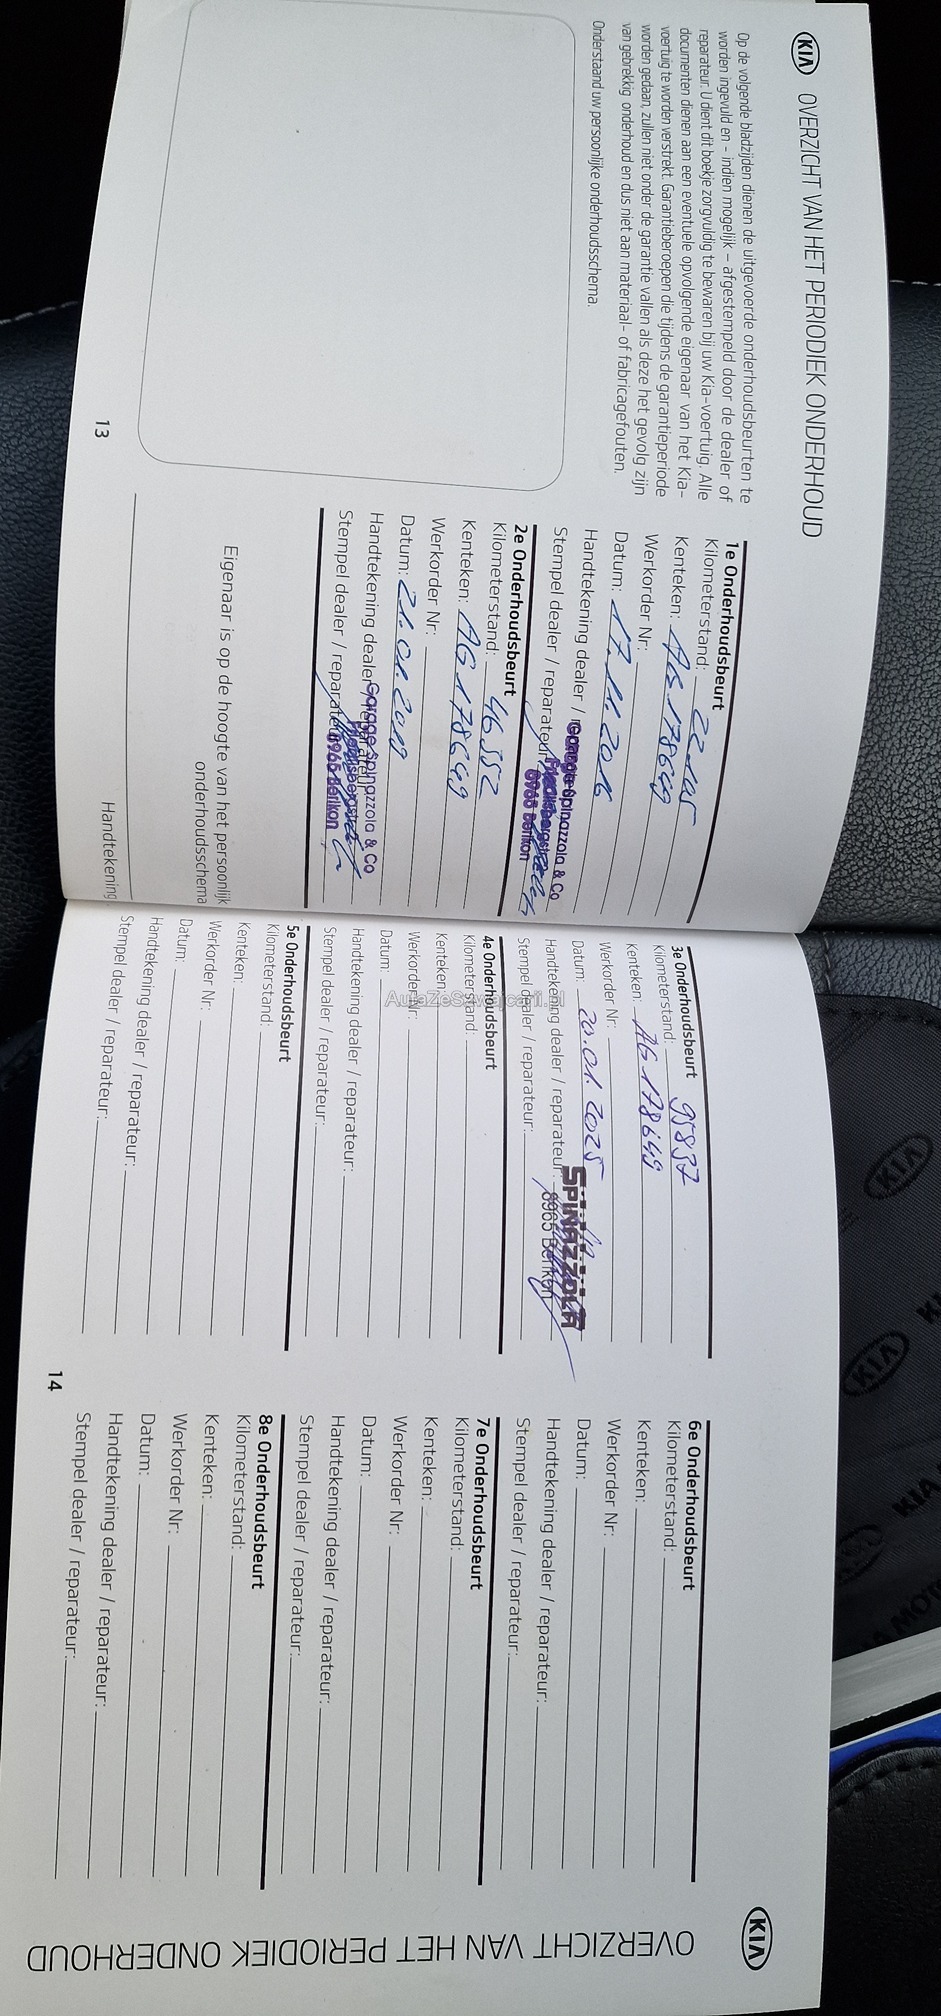 KIA
OVERZICHT VAN HET PERIODIEK ONDERHOUD
Op de volgende bladzijden dienen de uitgevoerde onderhoudsbeurten te
worden ingevuld en - indien mogelijk – afgestempeld door de dealer of
reparateur. U dient dit boekje zorgvuldig te bewaren bij uw Kia-voertuig. Alle
documenten dienen aan een eventuele opvolgende eigenaar van het Kia-
voertuig te worden verstrekt. Garantieberoepen die tijdens de garantieperiode
worden gedaan, zullen niet onder de garantie vallen als deze het gevolg zijn
van gebrekkig onderhoud en dus niet aan materiaal- of fabricagefouten.
Onderstaand uw persoonlijke onderhoudsschema.
13
1e Onderhoudsbeurt
Kilometerstand:
Kenteken: AG 178649
Werkorder Nr:
Datum: 17.11.2016
Handtekening dealer /
Stempel dealer / reparateur
Garage Spinazzola & Co
8965 Berikon
2e Onderhoudsbeurt
Kilometerstand: 46552
Kenteken: AG 178649
Werkorder Nr:
Datum: 21.01.2019
Handtekening dealer
Stempel dealer / reparateur
Garage Spinazzola & Co
8965 Berikon
Eigenaar is op de hoogte van het persoonlijk
onderhoudsschema
Handtekening
3e Onderhoudsbeurt
Kilometerstand: 95837
Kenteken: AG 178649
Werkorder Nr:
Datum: 20.01.2025
Handtekening dealer / reparateur
Stempel dealer / reparateur:
SPINAZZOLA
8965 Berikon
4e Onderhoudsbeurt
Kilometerstand:
Kenteken:
Werkorder Nr:
Datum:
Handtekening dealer / reparateur:
Stempel dealer / reparateur:
5e Onderhoudsbeurt
Kilometerstand:
Kenteken:
Werkorder Nr:
Datum:
Handtekening dealer / reparateur:
Stempel dealer / reparateur:
14
6e Onderhoudsbeurt
Kilometerstand:
Kenteken:
Werkorder Nr:
Datum:
Handtekening dealer / reparateur:
Stempel dealer / reparateur:
7e Onderhoudsbeurt
Kilometerstand:
Kenteken:
Werkorder Nr:
Datum:
Handtekening dealer / reparateur:
Stempel dealer / reparateur:
8e Onderhoudsbeurt
Kilometerstand:
Kenteken:
Werkorder Nr:
Datum:
Handtekening dealer / reparateur:
Stempel dealer / reparateur:
KIA
OVERZICHT VAN HET PERIODIEK ONDERHOUD
AutaZeSzwajcarii.pl
KIA
KIA
KIA
KIA MOTO